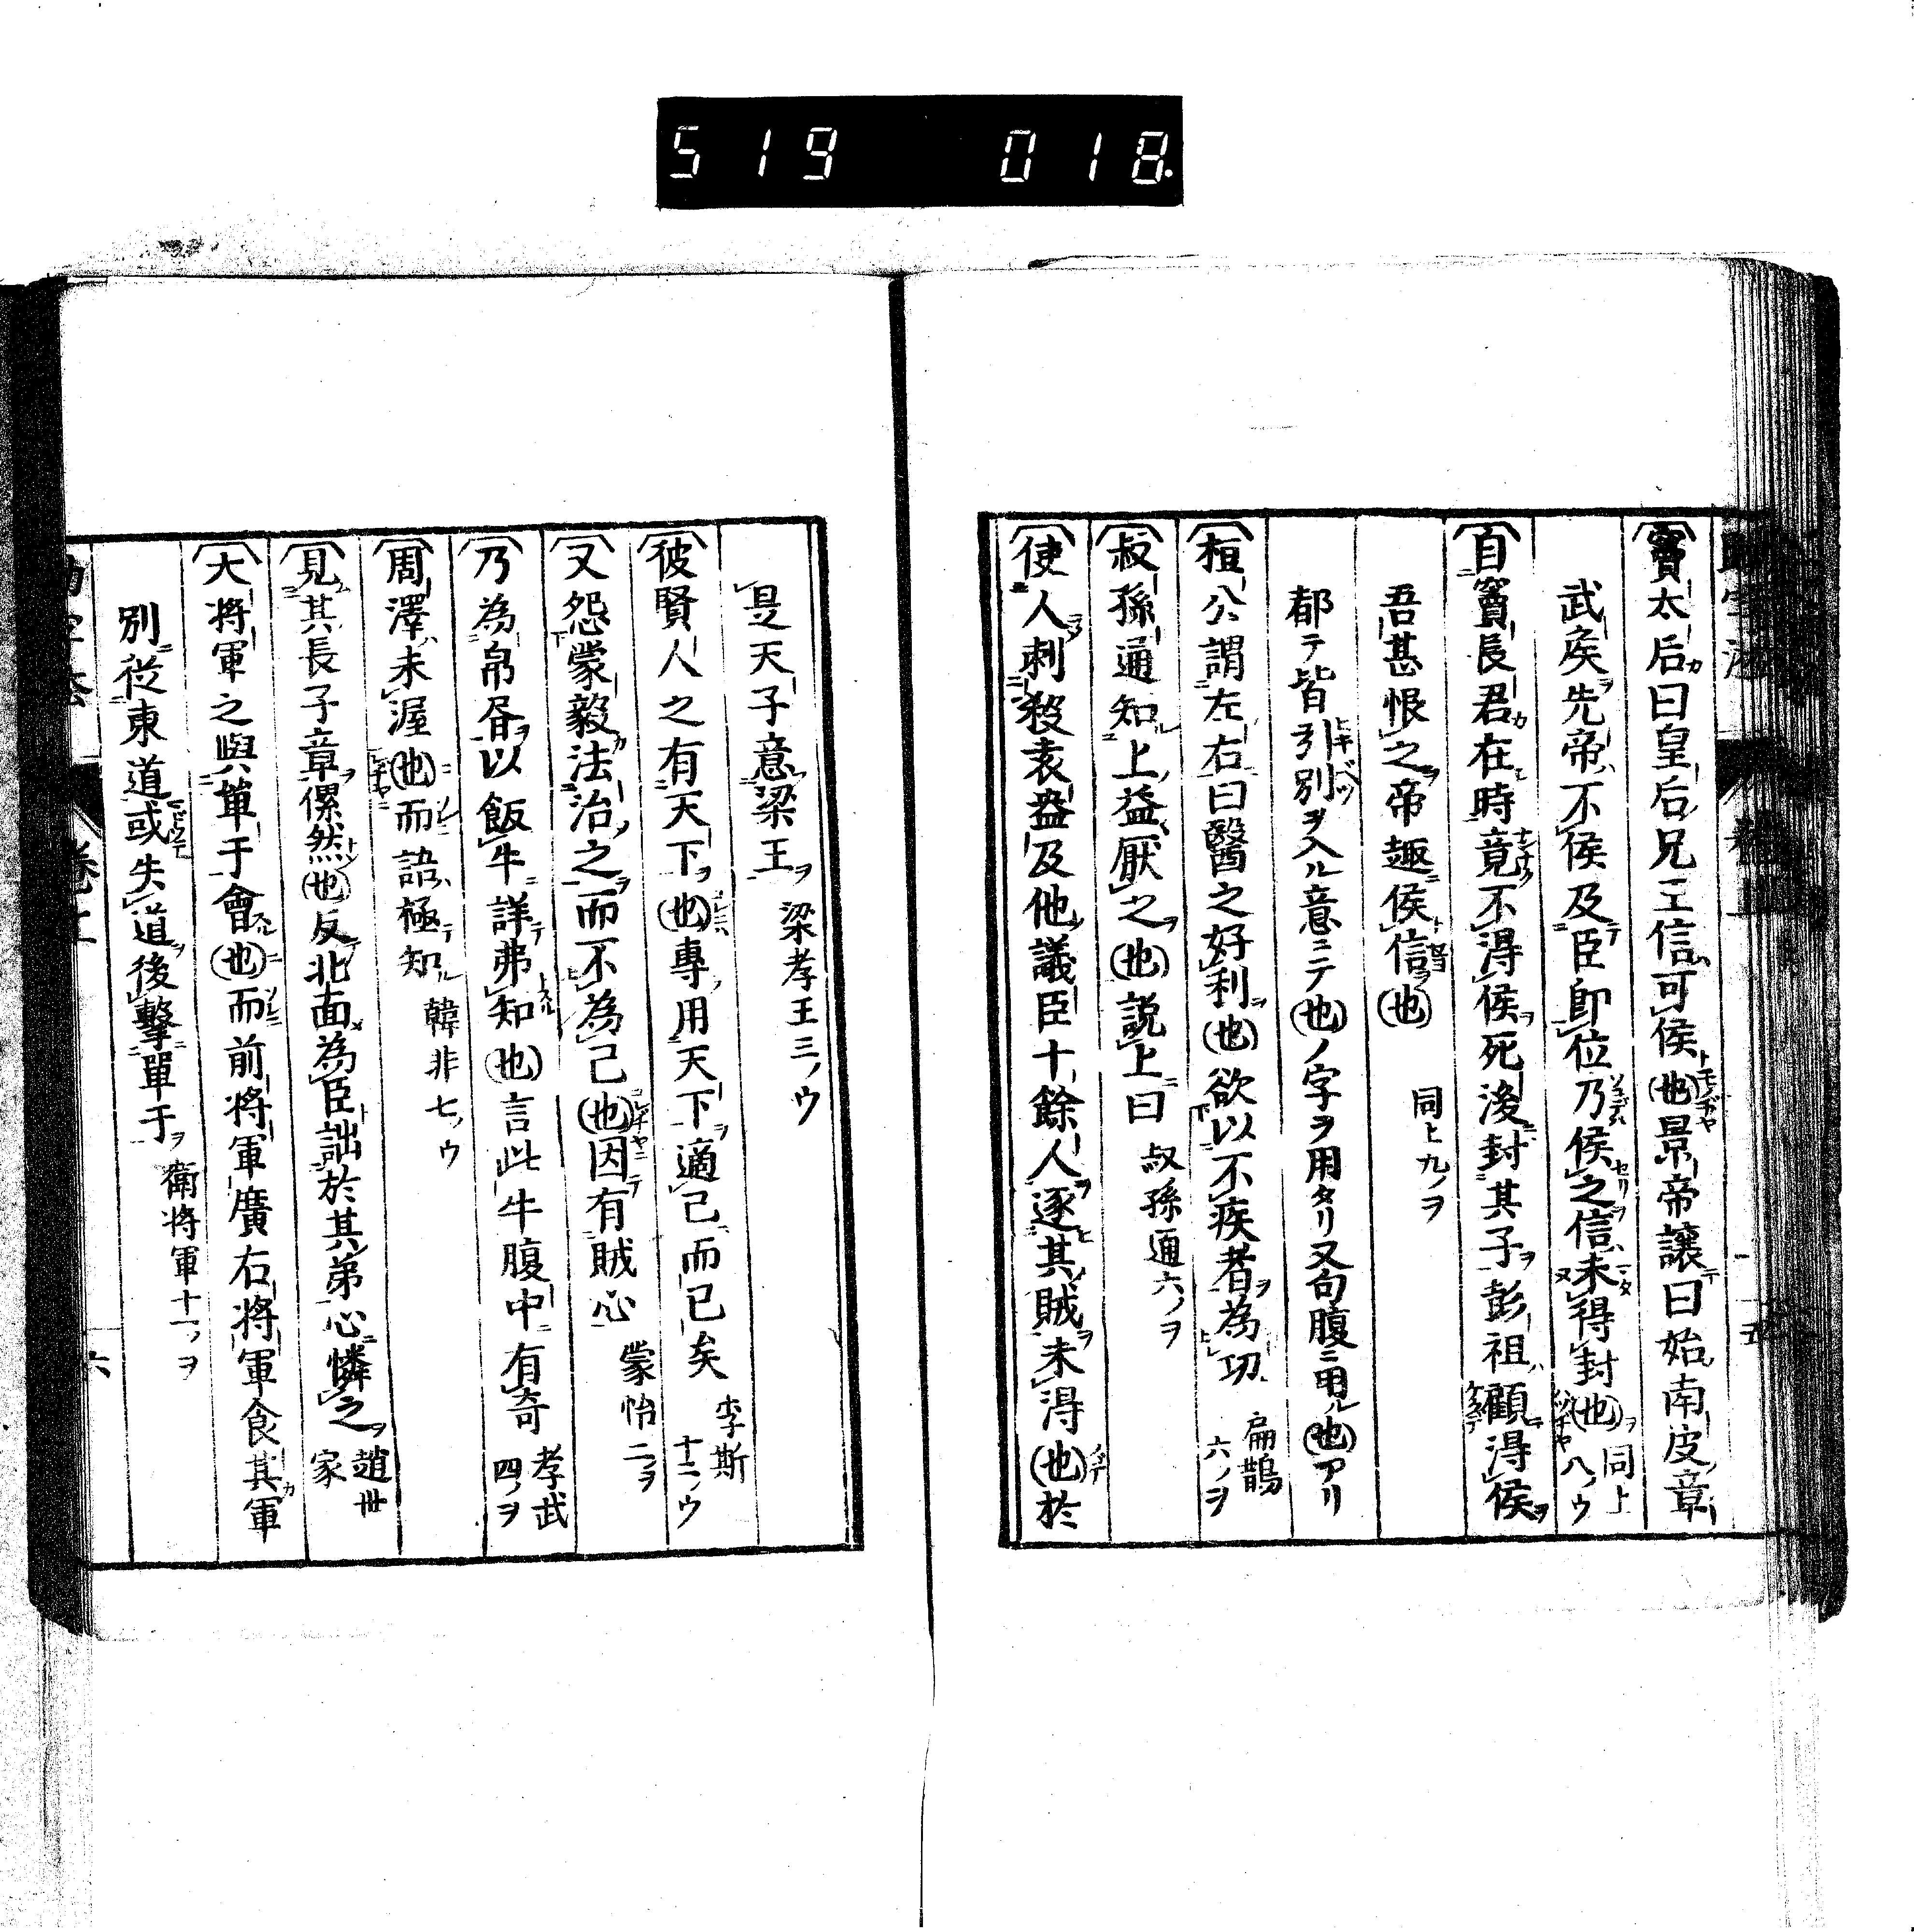 519 018.
竇太后曰皇后兄王信可侯(也)景帝讓曰始南皮章
武矦先帝不侯及臣即位乃侯之信未得封(也)同上八ノウ
自竇長君在時竟不淂侯死後封其子彭祖顧淂侯
吾甚恨之帝趣侯信(也) 同上九ノヲ
都テ皆引別ヲ入ル意ニテ(也)ノ字ヲ用タリ又句腹ニ用ル(也)アリ
桓公謂左右曰醫之好利(也)欲以不疾者為功 扁鵲六ノヲ
叔孫通知上益厭之(也)説上曰 叔孫通六ノヲ
使人刺殺袁盎及他議臣十餘人逐其賊未淂(也)於
是天子意梁王 梁孝王三ノウ
彼賢人之有天下(也)專用天下適己而已矣 李斯十二ノウ
又怨蒙毅法治之而不為己(也)因有賊心 蒙恬二ノヲ
乃為帛昬以飯牛詳弗知(也)言此牛腹中有奇 孝武四ノヲ
周澤未渥(也)而語極知 韓非七ノウ
見其長子章傫然(也)反北面為臣詘於其弟心憐之 趙世家
大將軍之與單于會(也)而前將軍廣右將軍食其軍
別從東道或失道後擊單于 衛將軍十一ノヲ
六